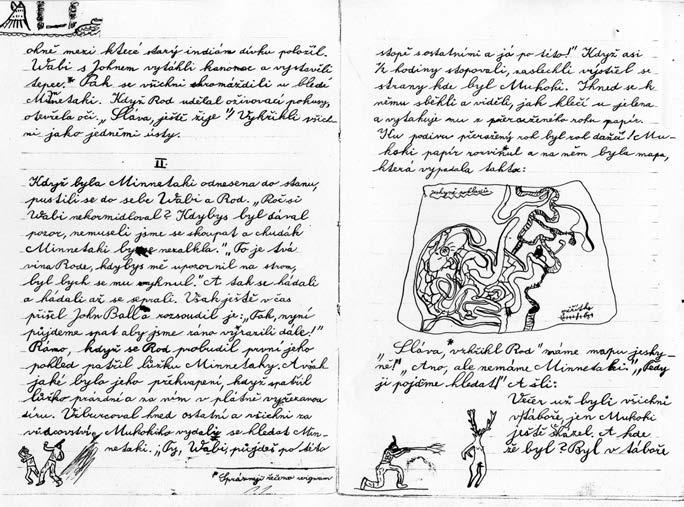 ALI
ohně mezi které starý indián dívku položil.
Wabi s Johnem vytáhli kanoe a vystavěli
tepee.* Pak se všichni shromáždili u bledé
Minnetaki. Když Rod udělal oživovací pokusy,
otevřela oči. „Sláva, ještě žije"! Vykřikli všich-
ni jako jedněmi ústy.
II.
Když byla Minnetaki odnesena do stanu,
pustili se do sebe Wabi a Rod. „Roč si
Wabi nekormidloval? Kdybys byl dával
pozor, nemuseli jsme se koupat a chudák
Minnetaki by se nezalkla." „To je tvá
vina Rode, kdybys mě upozornil na strom,
byl bych se mu vyhnul." A tak se hádali
a hádali až se seprali. Však ještě v čas
přišel John Ball a rozsoudil je: „Tak, nyní
půjdeme spát aby jsme ráno vyrazili dále!"
Ráno, když se Rod probudil první jeho
pohled patřil lůžku Minnetaky. Avšak
jaké bylo jeho překvapení, když spatřil
lůžko prázdné a na něm v plátně vyřezanou
díru. Vzburcoval hned ostatní a všichni za
vůdcovství Mukokiho vydali se hledat Min-
netaki. „Ty, Wabi, půjdeš po této
* Správněji řečeno wigwam
stopě s ostatními a já po této!" Když asi
½ hodiny stopovali, zaslechli výstřel se
strany kde byl Mukoki. Ihned se k
němu sběhli a viděli, jak klečí u jelena
a vytahuje mu z přeraženého rohu papír.
Ku podivu přeražený roh byl roh daňčí! Mu-
koki papír rozvinul a na něm byla mapa,
která vypadala takto:
„Sláva," vzkřikl Rod „máme mapu jesky-
ně!" „Ano, ale nemáme Minnetaki." „Tedy
ji pojďme hledat!" A šli:
Večer už byli všichni
v táboře, jen Mukoki
ještě scházel. A kde
že byl? Byl v táboře